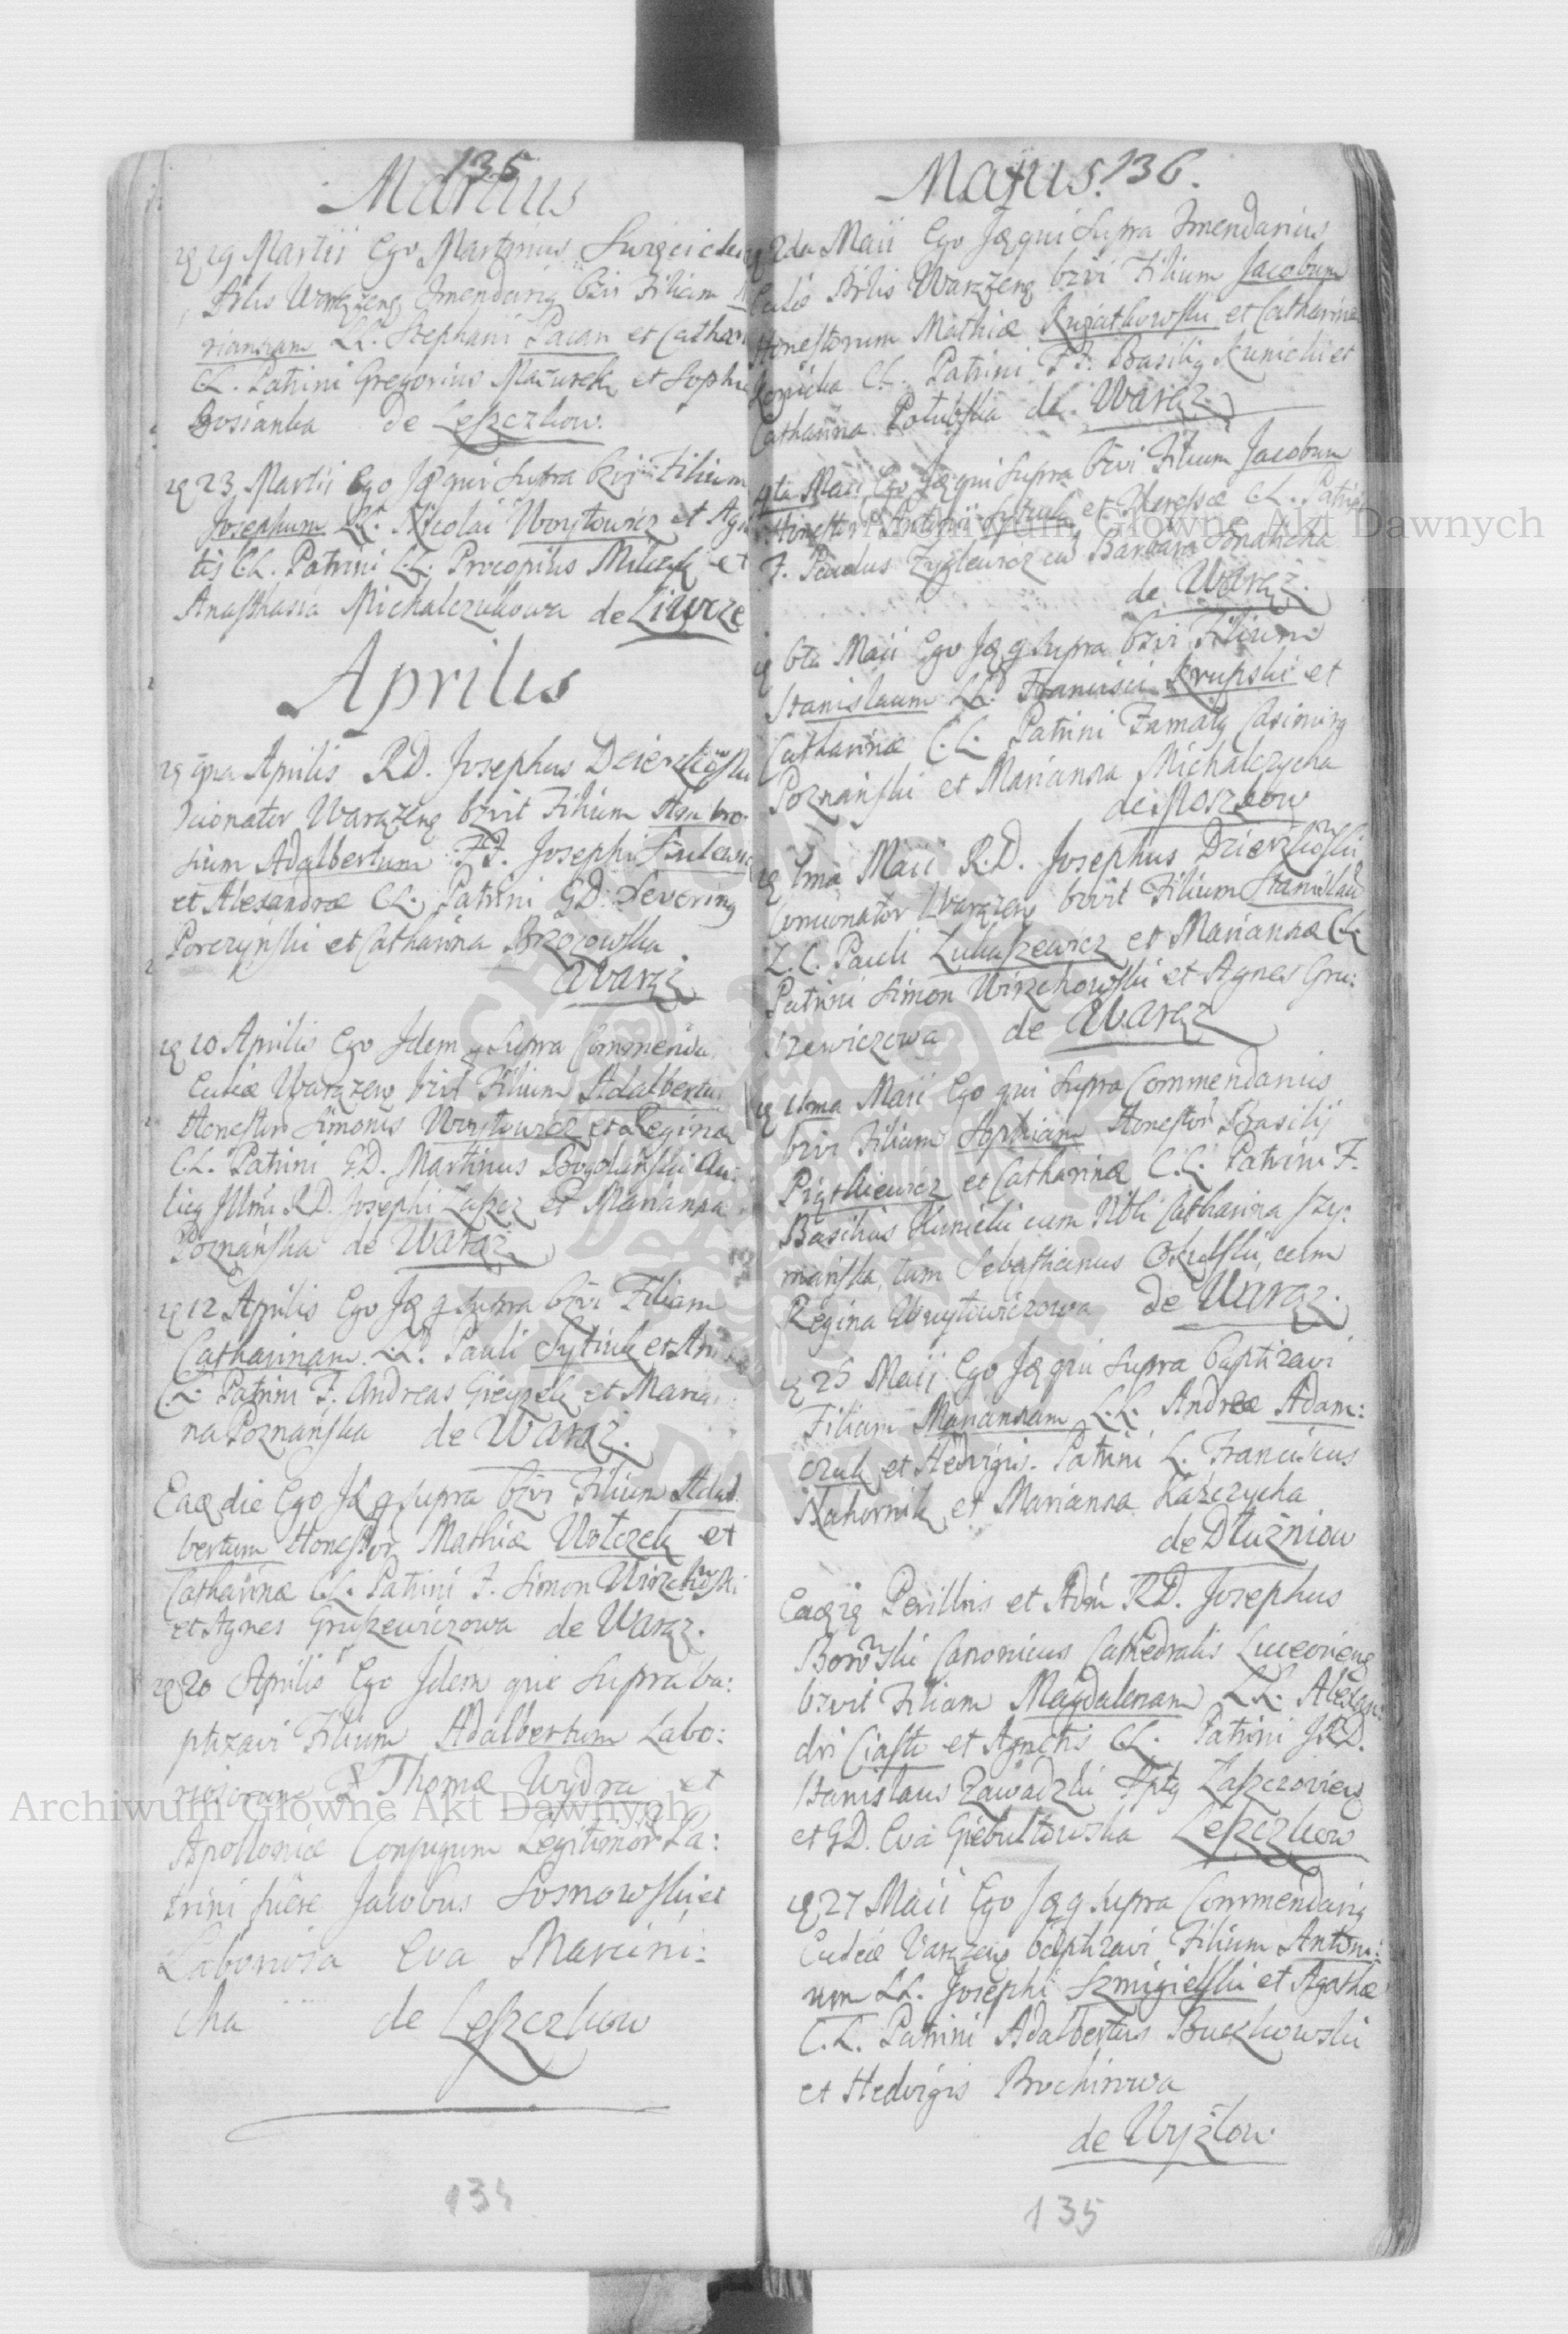 135
Martius
19 Martii Ego Martinus
Commendarius bzvi Filiam
riannam LL. Stephani Pacan et Cathari
CL. Patrini Gregorius Mazurek et Sophia
Bosianka de Leszczkow.
23 Martii Ego Idem qui Supra bzvi Filium
Josephum LL. Nicolai Woytowicz et Agne
tis CL. Patrini LL. Procopius Mulczyk et
Anasthasia Michalczukowa de Liwcze
Aprilis
Aprilis RD. Josephus Dzierzkowski
Concionator Warazens bzvit Filium Ambro:
sium Adalbertum FF. Josephi
et Alexandrae CL. Patrini GD. Severinus
Porczynski et Catharina Brzozowska
Waraz
10 Aprilis Ego Idem q Supra Commenda
Ecclae Warazens bzvi Filium Adalbertu
Honestor Simonis Woytowicz et Regina
CL. Patrini GD. Martinus Bogdanski Au:
licus Illmi RD. Josephi Laszcz et Marianna
Poznanska de Waraz
12 Aprilis Ego Id q Supra bzvi Filiam
Catharinam LL. Pauli Sytiuk et An
CL. Patrini F. Andreas Gieyzek et Maria
na Poznanska de Waraz.
Eadem die Ego Id q Supra bzvi Filium Adal:
bertum Honestor Mathiae Wolczek et
Catharinae CL. Patrini F. Simon Wirzchowski
et Agnes Gruszewiczowa de Waraz.
20 Aprilis Ego Idem qui Supra ba:
ptizavi Filium Adalbertum Labo:
riosorum Thomae Wydra et
Apolloniae Conjugum Legitimor Pa:
trini fuere Jacobus Sosnowski et
Laboriosa Eva Marcini:
cha de Leszczkow
134
Majus. 136.
2da Maii Ego Id qui Supra Commendarius
Eccle Filium Jacobum
Honestorum Mathiae et Catharinae
CL. Patrini FF. Basilius Kunicki et
Catharina Potubska de Waraz
4ta Maii Ego Id qui Supra bzvi Filium Jacobum
Honestor Antonii et Theresae CL. Patrini
F. Paulus Zyglewicz cu Barbara
de Waraz.
6ta Maii Ego Id q Supra bzvi Filium
Stanislaum LL. Francisci Krupski et
Catharinae C.L. Patrini Famatus Casimirus
Poznanski et Marianna Michalczycha
de Moszkow
Maii R.D. Josephus Dzierzkowski
Concionator Warazens bzvit Filium Stanislau
L.L. Pauli Lukaszewicz et Mariannae CL
Patrini Simon Wirzchowski et Agnes Gru:
szewiczowa de Waraz
Maii Ego qui Supra Commendarius
bzvi Filiam Sophiam Honestor Basilii
Piatkiewicz et Catharinae C.L. Patrini F.
Basilius Kunicki cum Nbli Catharina Szy:
manska, tum Sebasthianus Okulski, cum
Regina Woytowiczowa de Waraz.
25 Maii Ego Id qui Supra baptizavi
Filiam Mariannam L.L. Andreae Adam:
czuk et Hedvigis. Patrini L. Franciscus
Nahornik et Marianna Kaszczycha
de Dłużniow
Perillris et Adm RD. Josephus
Borowski Canonicus Cathedralis Luceoriens
bzvit Filiam Magdalenam LL. Alexan:
dri Ciastu et Agnetis CL. Patrini
Stanislaus Zawadzki Laszczoviens
et GD. Eva Giebultowska Leszczkow
27 Maii Ego Id q Supra Commendarius
Eccleae Varazens baptizavi Filium Antoni:
um LL. Josephi Szmigielski et Agathae
C.L. Patrini Adalbertus Buczkowski
et Hedvigis Brochirowa
de Wyżłow.
135
Archiwum Główne Akt Dawnych
Archiwum Główne Akt Dawnych